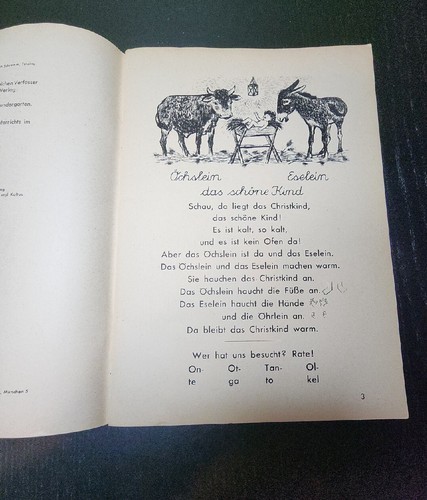 lichen Verfasser
Verlag.
indergarten,
nterrichts im
und Kultus
, München 3
Öchslein Eselein
das schöne Kind
Schau, da liegt das Christkind,
das schöne Kind!
Es ist kalt, so kalt,
und es ist kein Ofen da!
Aber das Öchslein ist da und das Eselein.
Das Öchslein und das Eselein machen warm.
Sie hauchen das Christkind an.
Das Öchslein haucht die Füße an.
Das Eselein haucht die Hände
und die Öhrlein an.
Da bleibt das Christkind warm.
Wer hat uns besucht? Rate!
On- Ot- Tan- Ol-
te ga to kel
3